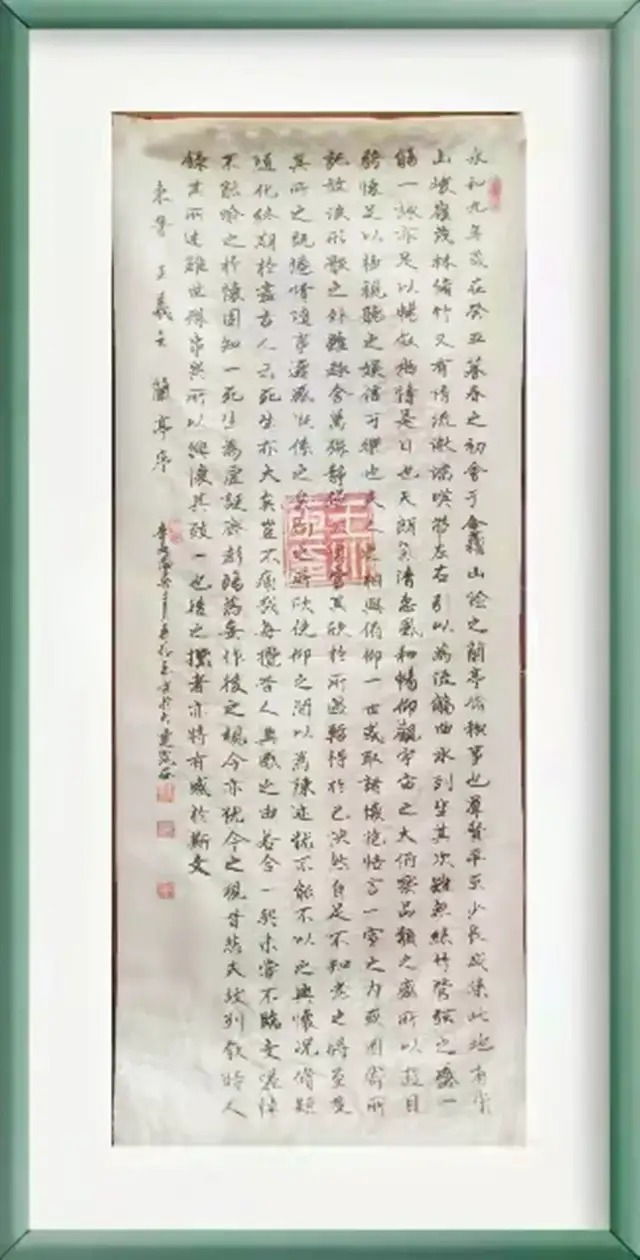 永和九年歲在癸丑暮春之初會于會稽山陰之蘭亭脩稧事也羣賢畢至少長咸集此地有崇
山峻嶺茂林脩竹又有清流激湍暎帶左右引以為流觴曲水列坐其次雖無絲竹管弦之盛一
觴一詠亦足以暢敘幽情是日也天朗氣清惠風和暢仰觀宇宙之大俯察品類之盛所以遊目
騁懷足以極視聽之娛信可樂也夫人之相與俯仰一世或取諸懷抱悟言一室之內或因寄所
託放浪形骸之外雖趣舍萬殊靜躁不同當其欣於所遇暫得於己快然自足不知老之將至及
其所之既惓情隨事遷感慨係之矣向之所欣俛仰之間以為陳迹猶不能不以之興懷況脩短
隨化終期於盡古人云死生亦大矣豈不痛哉每攬昔人興感之由若合一契未嘗不臨文嗟悼
不能喻之於懷固知一死生為虛誕齊彭殤為妄作後之視今亦猶今之視昔悲夫故列敘時人
錄其所述雖世殊事異所以興懷其致一也後之攬者亦將有感於斯文
東晉王羲之蘭亭序